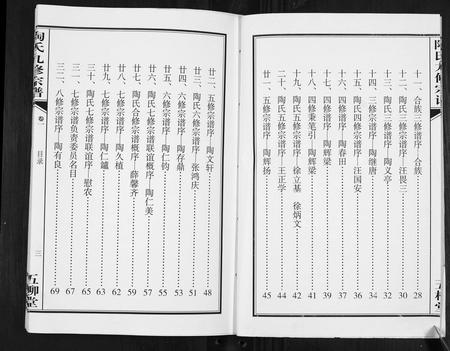 陶氏九修宗谱
十一、合族三修宗谱序—合族……28
十二、陶氏三修宗谱序—汪畏三……30
十三、陶氏三修宗谱序—陶义亭……32
十四、三修宗谱序—陶继唐……34
十五、陶氏四修宗谱序—汪国安……36
十六、四修宗谱序—陶春田……37
十七、四修宗谱序—陶辉梁……39
十八、四修秉笔引—陶辉梁……41
十九、陶氏五修宗谱序—徐立基 徐炳文……42
二十、陶氏五修宗谱序—王正学……44
廿一、五修宗谱序—陶辉扬……45
廿二、五修宗谱序—陶文轩……48
廿三、陶氏六修宗谱序—张鸿庆……51
廿四、六修宗谱序—陶存鼎……53
廿五、六修宗谱序—陶仁钧……55
廿六、陶氏七修宗谱联谊概序 陶仁美……57
廿七、陶氏合修宗谱概序—薛馨齐……59
廿八、七修宗谱序—陶久植……62
廿九、七修宗谱序—陶仁鑪……63
三十、陶氏七修宗谱联谊序—慰农……65
三一、七修宗谱负责委员名目……67
三二、八修宗谱序—陶有良……69
陶氏九修宗谱
卷一
目录
三
五柳堂